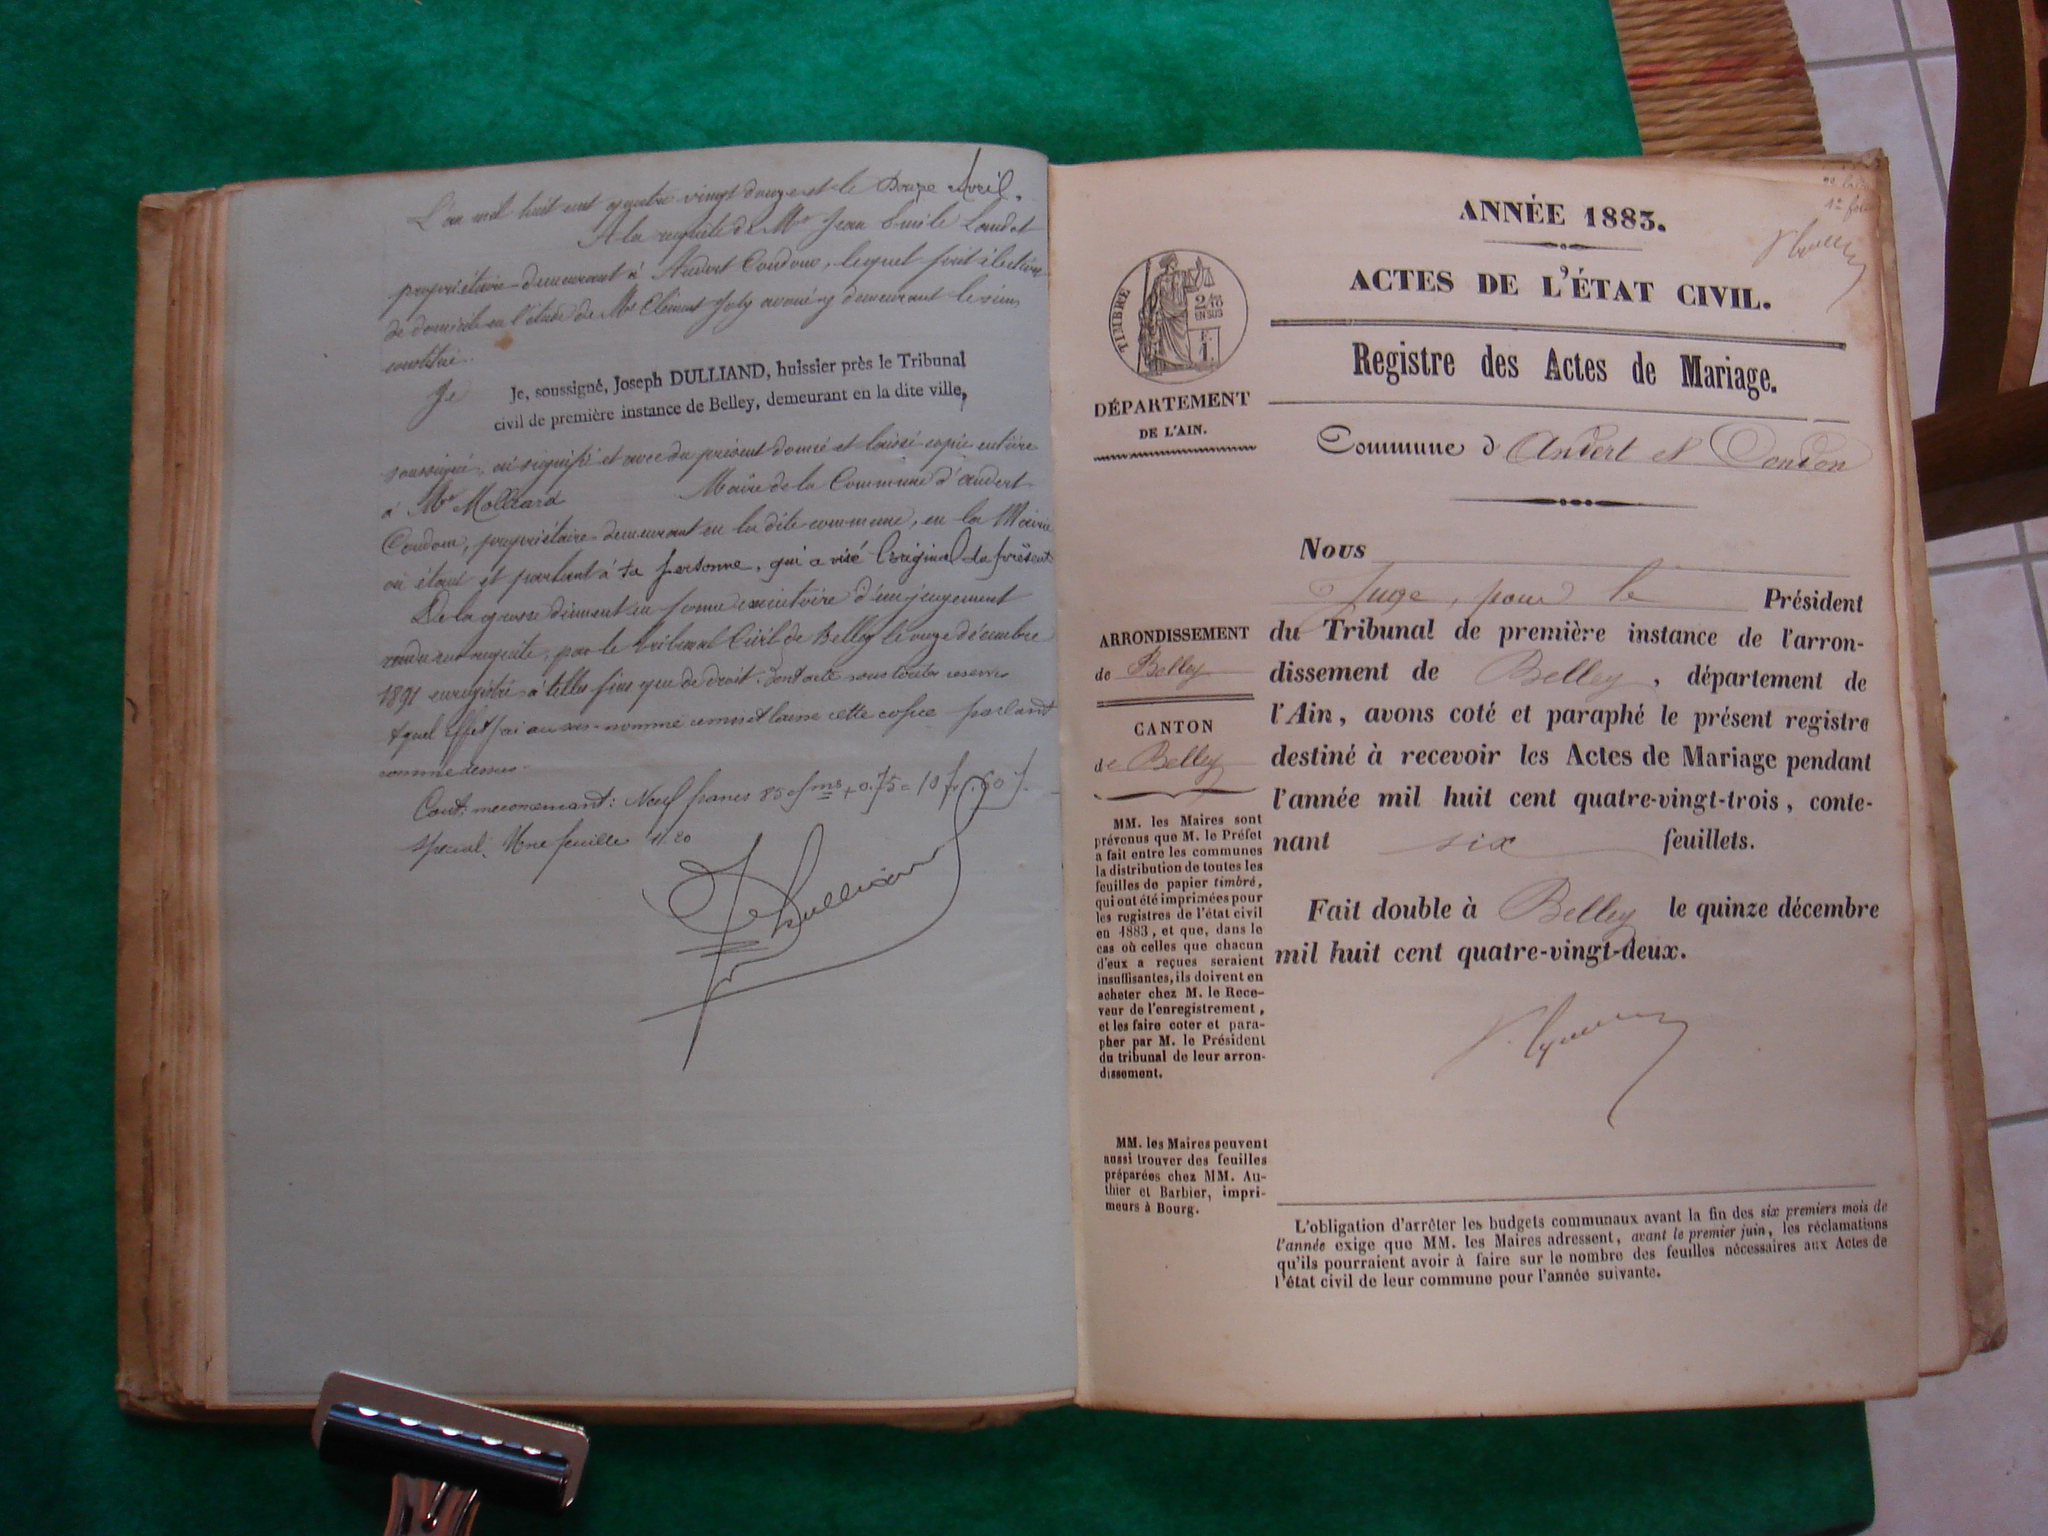 L'an mil huit cent quatre vingt douze et le Douze Avril.
A la requête de Mr Jean Emile Landot
propriétaire demeurant à Andert Condon, lequel fait élection
de domicile en l'étude de Me Clément Joly avoué y demeurant le sien
constitué.
Je
Je, soussigné, Joseph DULLIAND, huissier près le Tribunal
civil de première instance de Belley, demeurant en la dite ville,
soussigné, ai signifié et avec du présent donné et laissé copie entière
à Mr Molliard Maire de la Commune d'andert
Condon, propriétaire demeurant en la dite commune, en la Mairie
où étant et parlant à sa personne, qui a visé l'original du présent
De la grosse dûment en forme exécutoire d'un jugement
rendu sur requête, par le tribunal Civil de Belley le onze décembre
1891 enregistré, à telles fins que de droit. Dont acte sous toutes réserves
quel effet j'ai au sus-nommé remis et laissé cette copie parlant
comme dessus.
Neuf francs 85 + 0.75 = 10 fr. 60
Spécial: Une feuille 20
Dulliand
ANNÉE 1883.
ACTES DE L'ÉTAT CIVIL.
Registre des Actes de Mariage.
Commune d'Andert et Condon
TIMBRE
2/10
EN SUS
F.
1.
DÉPARTEMENT
DE L'AIN.
ARRONDISSEMENT
de Belley
CANTON
de Belley
MM. les Maires sont
prévenus que M. le Préfet
a fait entre les communes
la distribution de toutes les
feuilles de papier timbré,
qui ont été imprimées pour
les registres de l'état civil
en 1883, et que, dans le
cas où celles que chacun
d'eux a reçues seraient
insuffisantes, ils doivent en
acheter chez M. le Rece-
veur de l'enregistrement,
et les faire coter et para-
pher par M. le Président
du tribunal de leur arron-
dissement.
MM. les Maires peuvent
aussi trouver des feuilles
préparées chez MM. Au-
thier et Barbier, impri-
meurs à Bourg.
Nous
Juge, pour le Président
du Tribunal de première instance de l'arron-
dissement de Belley, département de
l'Ain, avons coté et paraphé le présent registre
destiné à recevoir les Actes de Mariage pendant
l'année mil huit cent quatre-vingt-trois, conte-
nant six feuillets.
Fait double à Belley le quinze décembre
mil huit cent quatre-vingt-deux.
L'obligation d'arrêter les budgets communaux avant la fin des six premiers mois de
l'année exige que MM. les Maires adressent, avant le premier juin, les réclamations
qu'ils pourraient avoir à faire sur le nombre des feuilles nécessaires aux Actes de
l'état civil de leur commune pour l'année suivante.